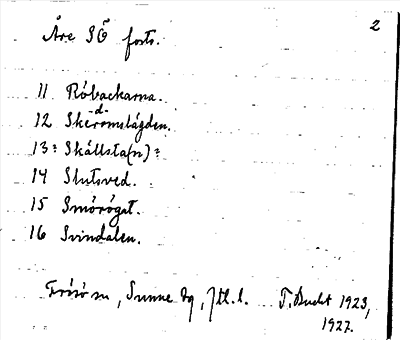 2
Åre SÖ forts.
11 Röbackarna.
-d-
12 Skeromslägden.
13? Skållsta(n)?
14 Slutsved.
15 Smörögat.
16 Svindalen.
Frösö sn, Sunne tg, Jtl. l. T. Bucht 1923,
1927.